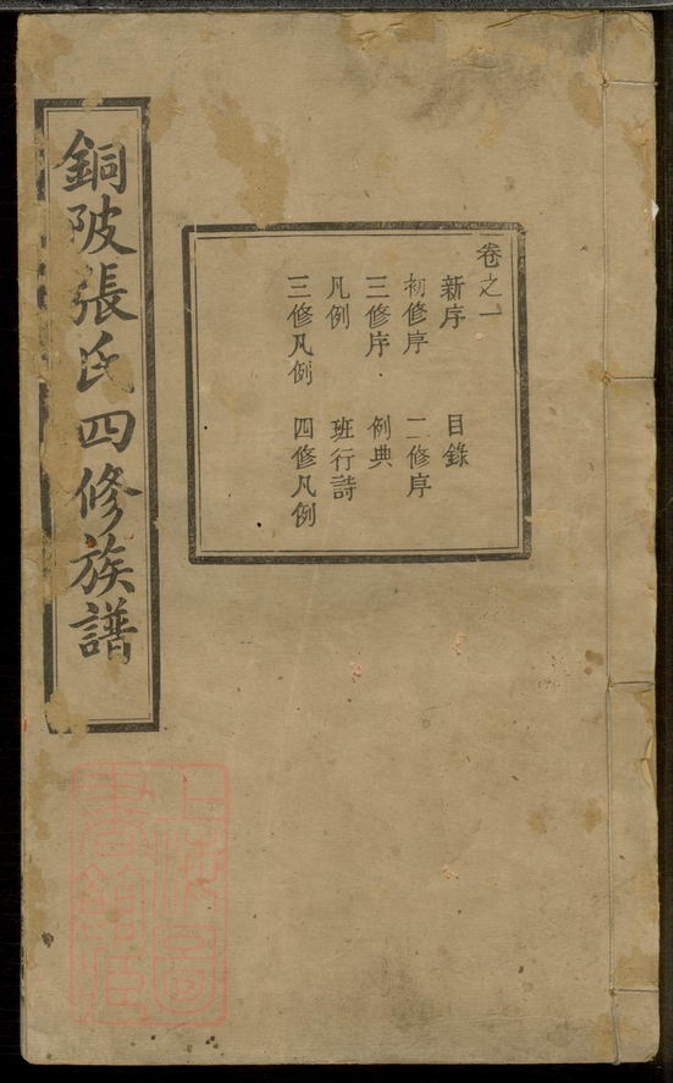 銅陂張氏四修族譜
卷之一
新序 目錄
初修序 二修序
三修序 例典
凡例 班行詩
三修凡例 四修凡例
上海圖書館藏